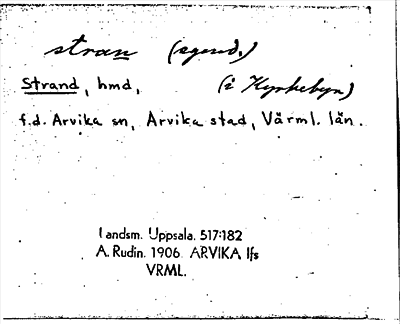 stran (agend.)
Strand, hmd, (i Kyrkebyn)
f.d. Arvika sn, Arvika stad, Värml. län.
Landsm. Uppsala. 517:182
A. Rudin. 1906. ARVIKA lfs
VRML.